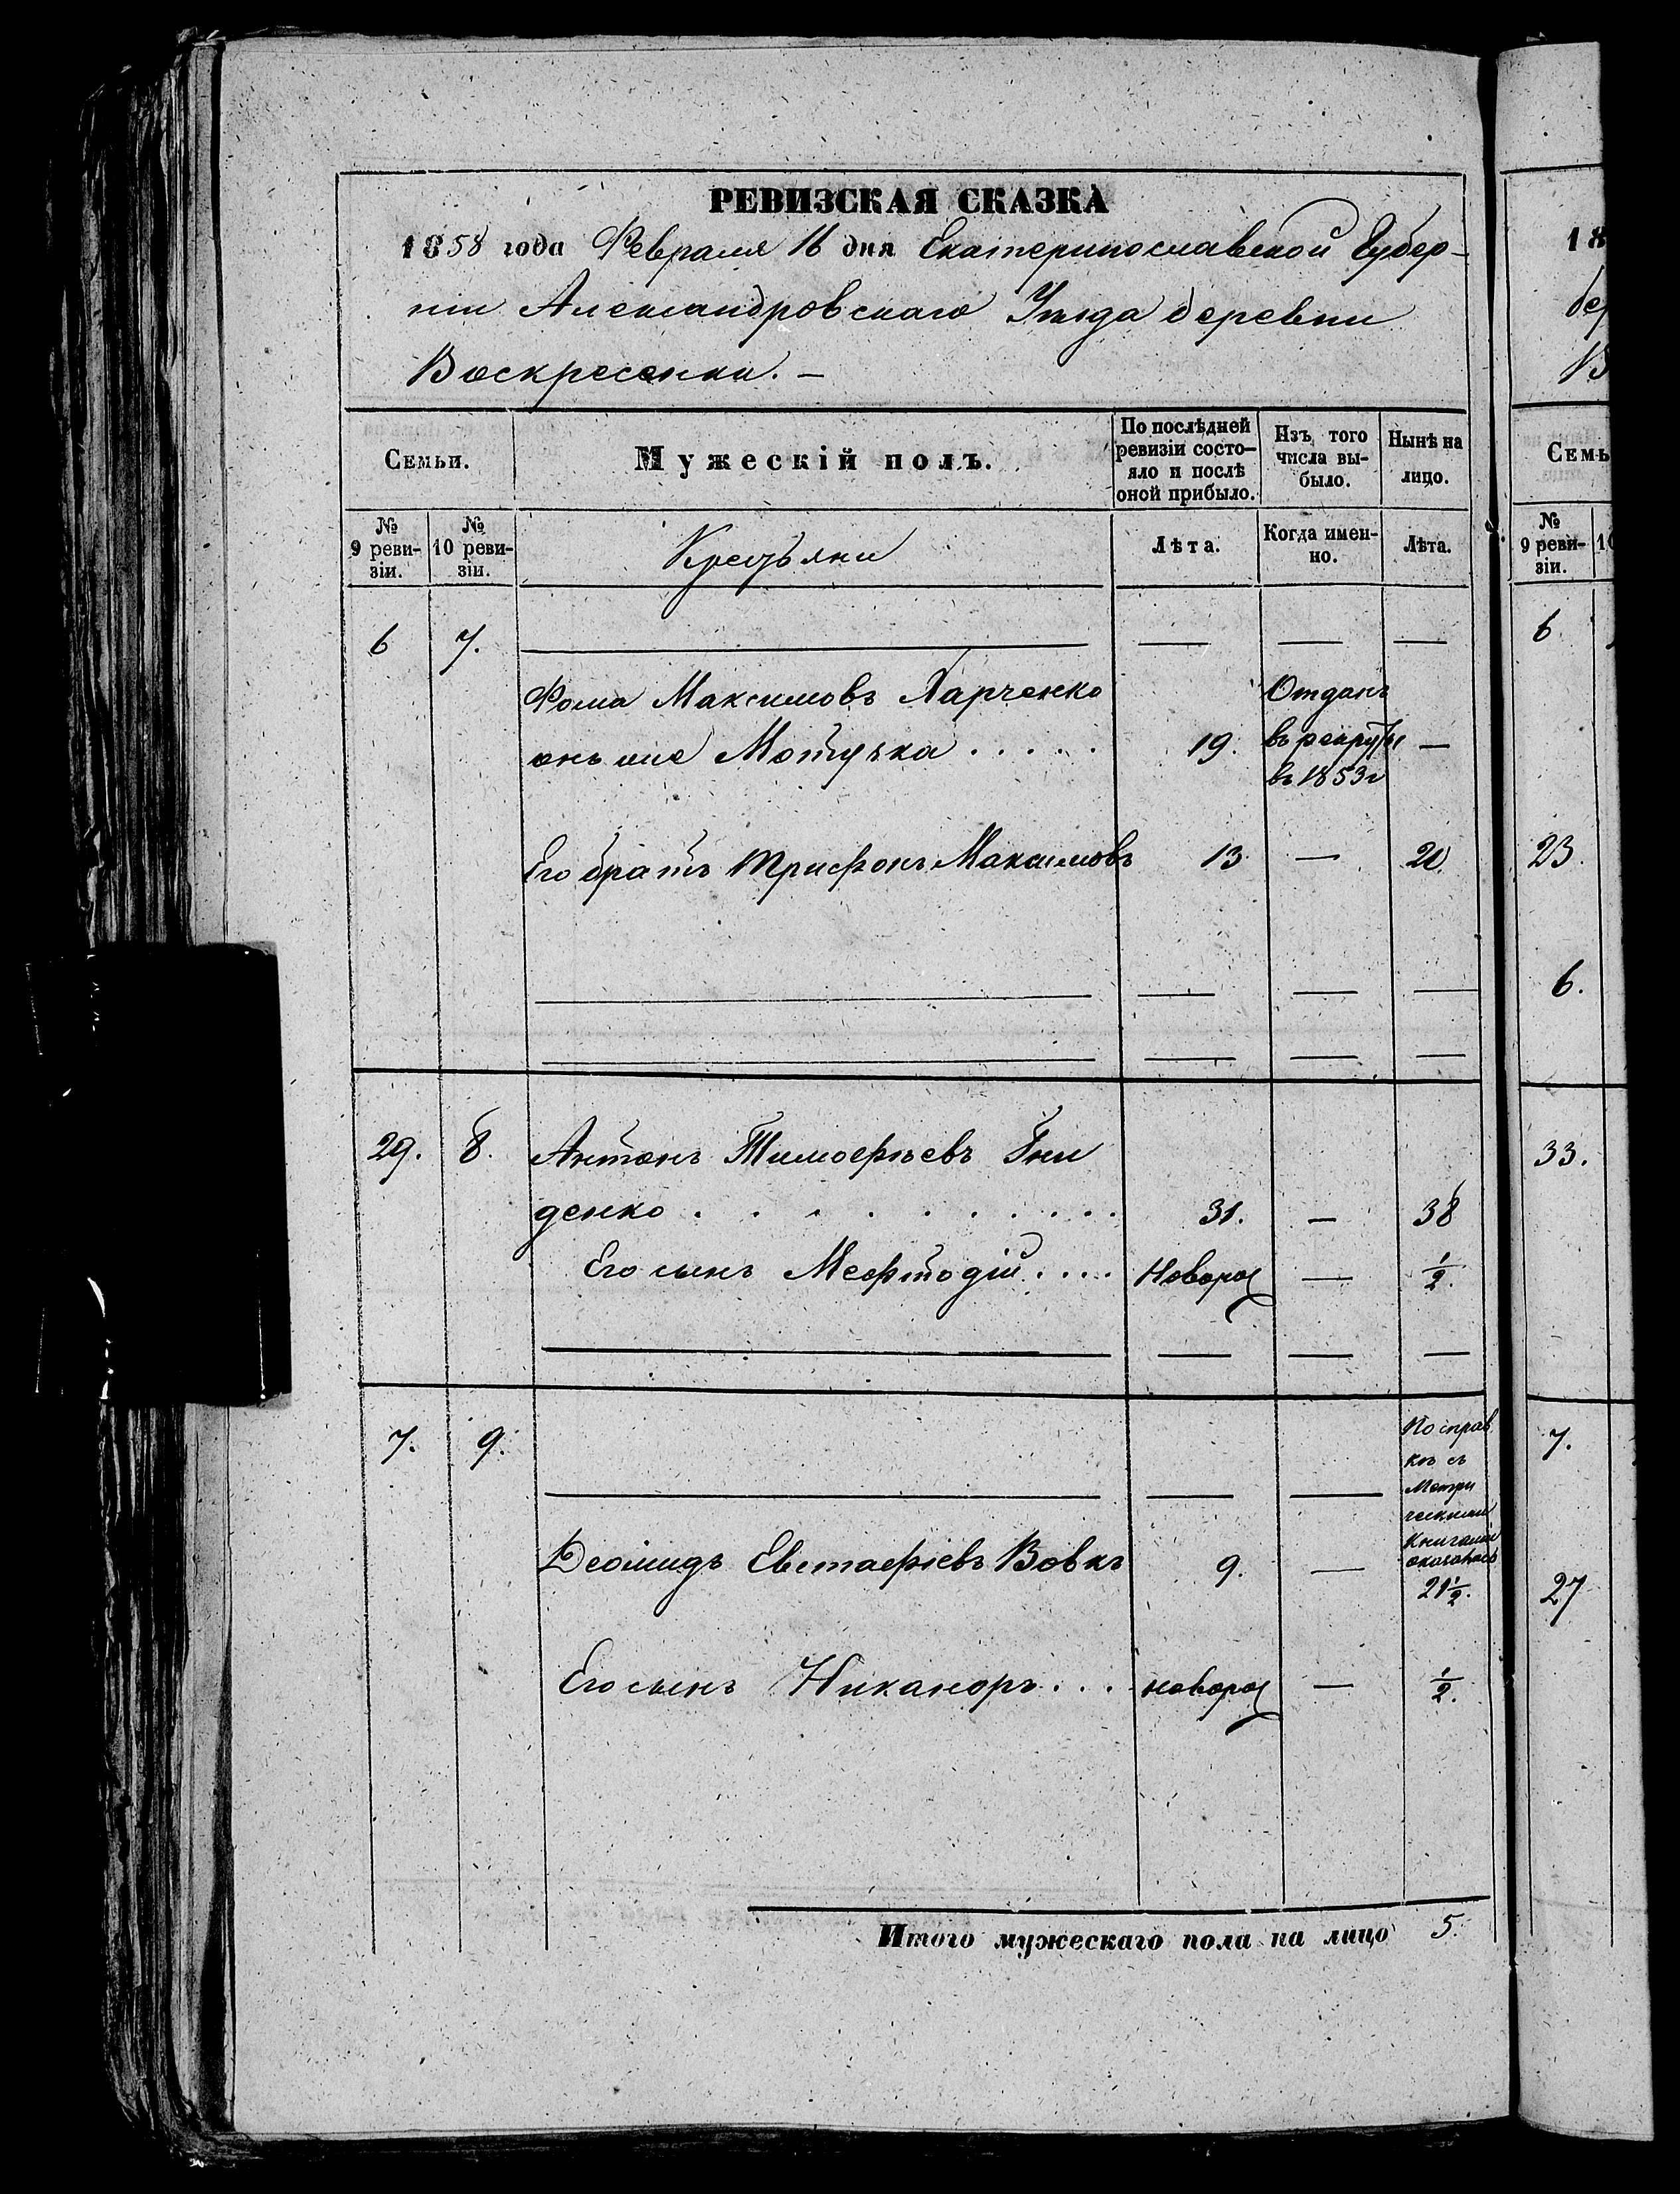 РЕВИЗСКАЯ СКАЗКА
1858 года Февраля 16 дня Екатеринославской Губер-
ніи Александровскаго Уѣзда деревни
Воскресенки. –
Семьи.
Мужескій полъ.
По послѣдней
ревизіи состо-
яло и послѣ
оной прибыло.
Изъ того
числа вы-
было.
Нынѣ на
лицо.
№
9 реви-
зіи.
№
10 реви-
зіи.
Крестьяни
Лѣта.
Когда имен-
но.
Лѣта.
6 7. — — — —
Фома Максимовъ Харченко Отданъ
онъ же Мотузка . . . . . 19. въ рекруты —
въ 1853 г
Его братъ Трифонъ Максимовъ 13 — 20.
— — — —
— — — —
29. 8. Антонъ Тимофѣевъ Гни
денко . . . . . . . . . . 31. — 38
Его сынъ Мефтодій . . . . Новорож — ½.
— — — —
7. 9. По справ
кѣ съ
— — — Метри
ческими
Книгами
Деомидъ Евстафіевъ Вовкъ 9. — оказалось
21½.
Его сынъ Никаноръ . . . новорож — ½.
Итого мужескаго пола на лицо 5.
18
дер
В
Семь
№
9 реви-
зіи.
10
6
23.
6.
33.
7.
27